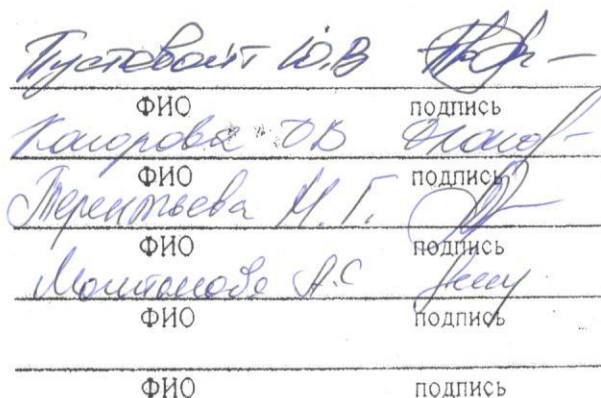 Пустовойт Ю.В
ФИО подпись
О.В
ФИО подпись
Терентьева Н.Г.
ФИО подпись
А.С
ФИО подпись
ФИО подпись